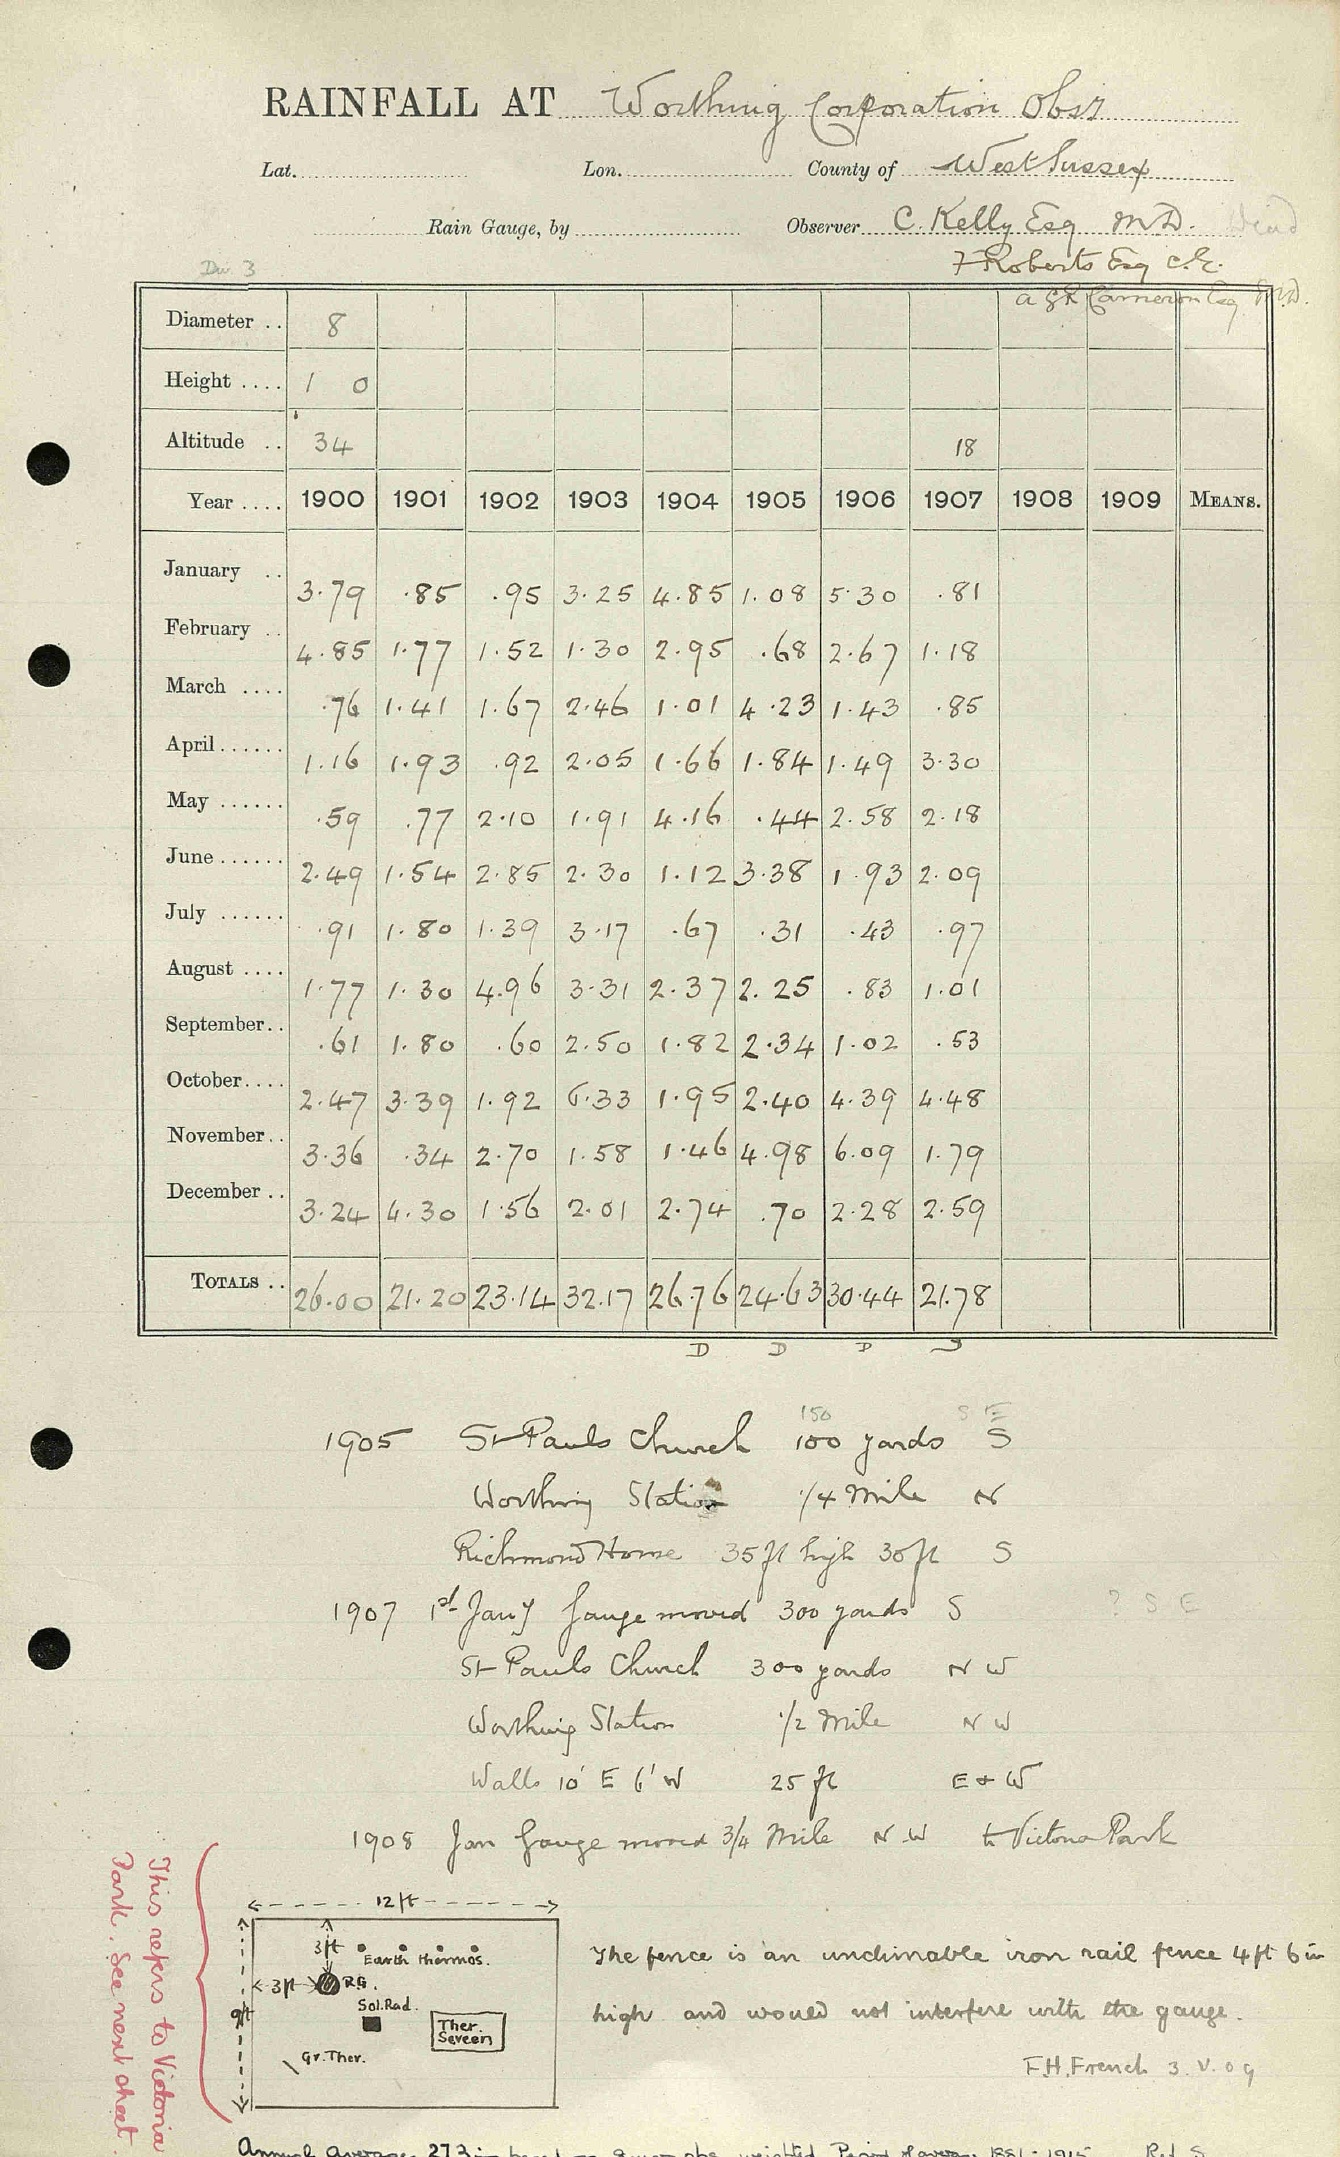 RAINFALL AT Worthing Corporation Obsy
Lat. Lon. County of West Sussex
Rain Gauge, by Observer C. Kelly Esq M.D. Dead
F Roberts Esq C.E.
Div. 3
A G R Cameron Esq M.D.
Diameter .. 8
Height .... 1 0
Altitude .. 34 18
Year .... 1900 1901 1902 1903 1904 1905 1906 1907 1908 1909 MEANS.
January .. 3.79 .85 .95 3.25 4.85 1.08 5.30 .81
February .. 4.85 1.77 1.52 1.30 2.95 .68 2.67 1.18
March .... .76 1.41 1.67 2.46 1.01 4.23 1.43 .85
April ...... 1.16 1.93 .92 2.05 1.66 1.84 1.49 3.30
May ...... .59 .77 2.10 1.91 4.16 .44 2.58 2.18
June ...... 2.49 1.54 2.85 2.30 1.12 3.38 1.93 2.09
July ...... .91 1.80 1.39 3.17 .67 .31 .43 .97
August .... 1.77 1.30 4.96 3.31 2.37 2.25 .83 1.01
September.. .61 1.80 .60 2.50 1.82 2.34 1.02 .53
October.... 2.47 3.39 1.92 6.33 1.95 2.40 4.39 4.48
November.. 3.36 .34 2.70 1.58 1.46 4.98 6.09 1.79
December .. 3.24 4.30 1.56 2.01 2.74 .70 2.28 2.59
TOTALS .. 26.00 21.20 23.14 32.17 26.76 24.63 30.44 21.78
D D D
150 S E
1905 St Pauls Church 100 yards S
Worthing Station 1/4 Mile N
Richmond House 35 ft high 30 ft S
1907 1st Jany Gauge moved 300 yards S ? S E
St Pauls Church 300 yards N W
Worthing Station 1/2 Mile N W
Walls 10' E 6' W 25 ft E & W
1908 Jan Gauge moved 3/4 Mile N.W to Victoria Park
This refers to Victoria
Park. See next sheet.
12ft
3ft Earth thermos.
3ft R.G.
Sol. Rad.
9ft
Ther.
Screen
Gr. Ther.
The fence is an unclimable iron rail fence 4 ft 6 in
high and would not interfere with the gauge.
F.H. French 3.V.09
Annual Average 27.3 in based on 8 years obs. weighted Period of average 1881-1915 Ref. S